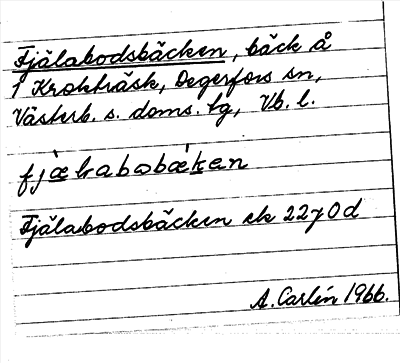 Fjälabodsbäcken, bäck å
1 Krokträsk, Degerfors sn,
Västerb. s. doms. tg, Vb. l.
fjælrabobækan
Fjälabodsbäcken ek 22y0d
A. Carlén 1966.